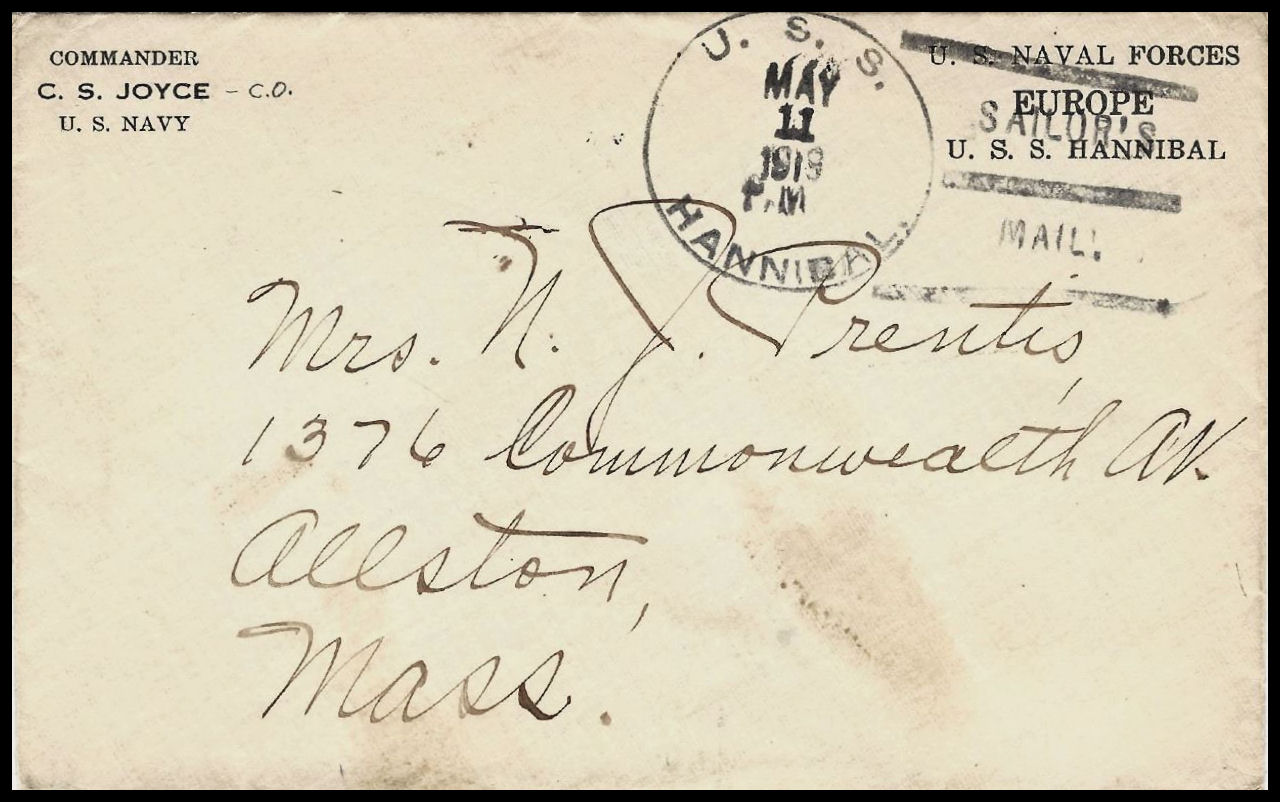 COMMANDER
C. S. JOYCE - C.O.
U. S. NAVY
U. S. S.
MAY
11
1919
P.M
HANNIBAL.
U. S. NAVAL FORCES
EUROPE
U. S. S. HANNIBAL
SAILOR'S
MAIL.
Mrs. N. J. Prentis,
1376 Commonwealth Av.
Allston,
Mass.